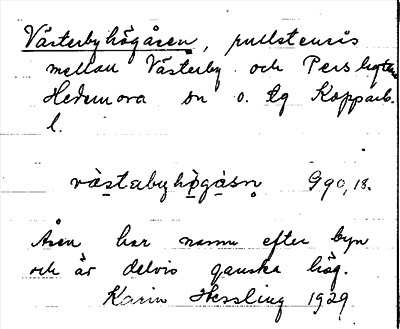 Västerbyhögåsen, rullstensås
mellan Västerby och Persbytten
Hedemora sn o. tg Kopparb.
l.
västabyhögåsn G90,18.
Åsen har namn efter byn
och är delvis ganska hög.
Karin Hessling 1929